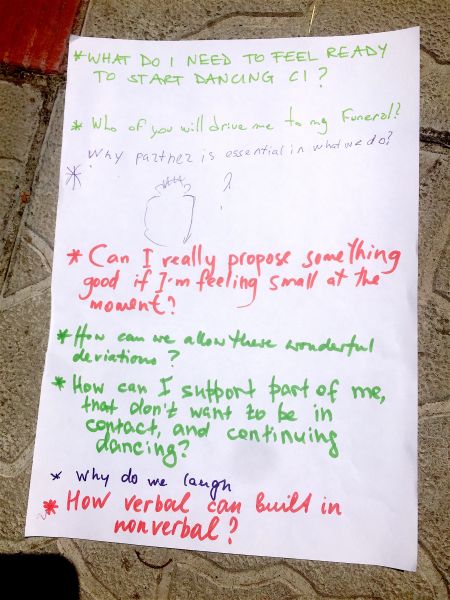 * WHAT DO I NEED TO FEEL READY
TO START DANCING CI?
* Who of you will drive me to my Funeral?
* Why partner is essential in what we do?
?
* Can I really propose something
good if I'm feeling small at the
moment?
* How can we allow these wonderful
deviations?
* How can I support part of me,
that don't want to be in
contact, and continuing
dancing?
* Why do we laugh
* How verbal can built in
nonverbal?